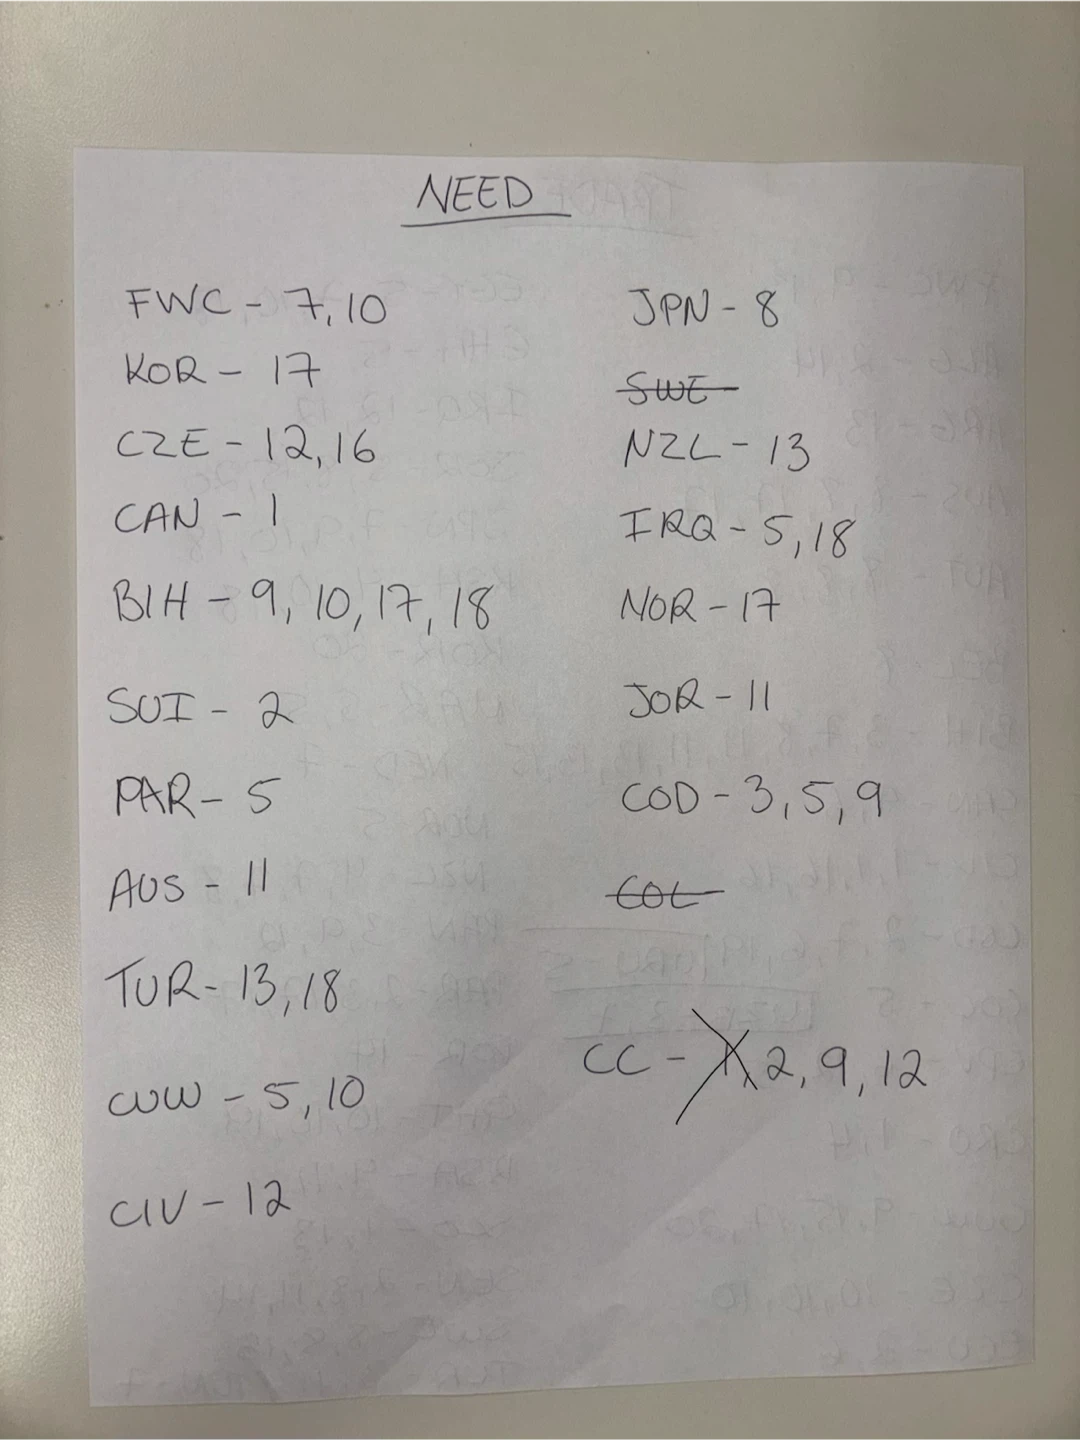 NEED
FWC - 7, 10
KOR - 17
CZE - 12, 16
CAN - 1
BIH - 9, 10, 17, 18
SUI - 2
PAR - 5
AUS - 11
TUR - 13, 18
CUW - 5, 10
CIV - 12
JPN - 8
SWE
NZL - 13
IRQ - 5, 18
NOR - 17
JOR - 11
COD - 3, 5, 9
COL
CC - 2, 9, 12